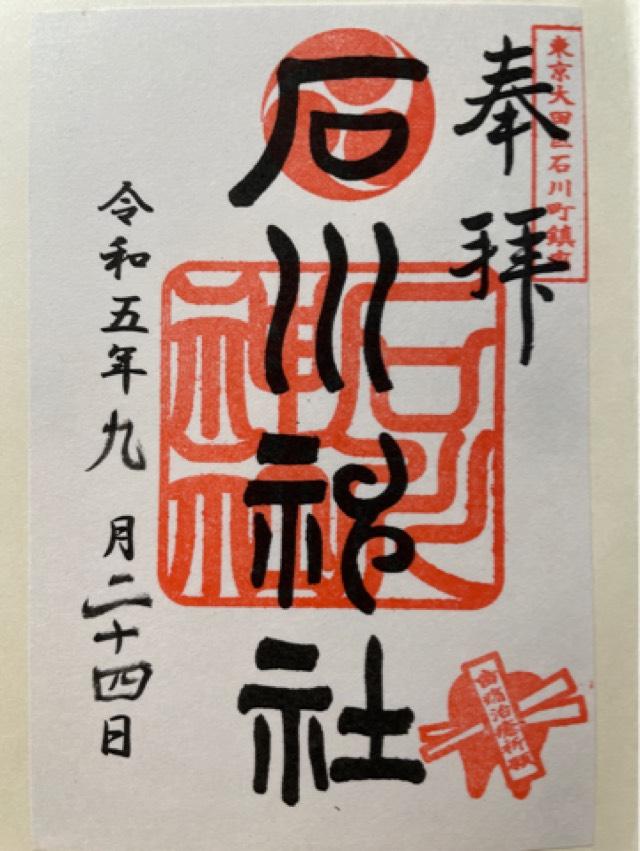 東京大田区石川町鎮守
奉拝
石川神社
石川神社
令和五年九月二十四日
歯痛治癒祈願